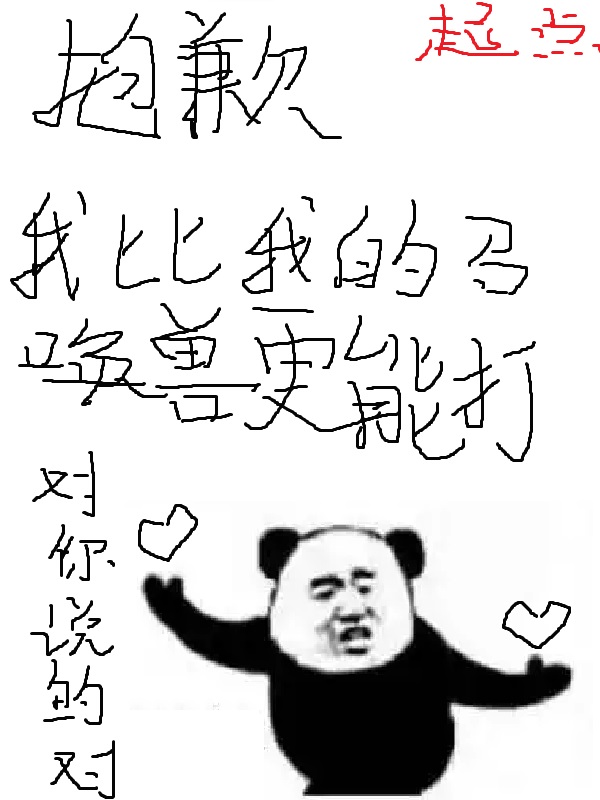 起点
抱歉
我比我的召
唤兽更能打
对
你
说
的
对